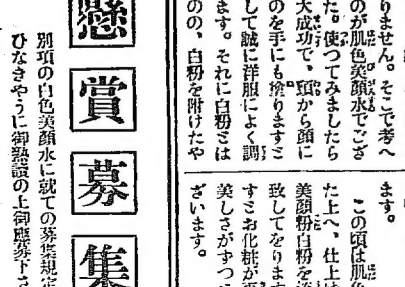 りません。そこで考へ
のが肌色美顔水でござ
た。使つてみましたら
大成功で、頸から顔に
のを手にも塗りますミ
して誠に洋服によく調
ます。それに白粉ミは
のの、白粉を附けたや
ます。
この頃は肌色
た上へ、仕上げ
美顔粉白粉を
致してをります
すミお化粧が
美しさがずつ
ざいます。
懸賞募集
別項の白色美顔水に就ての募集規定
ひなきやうに御熟読の上御應募下さ